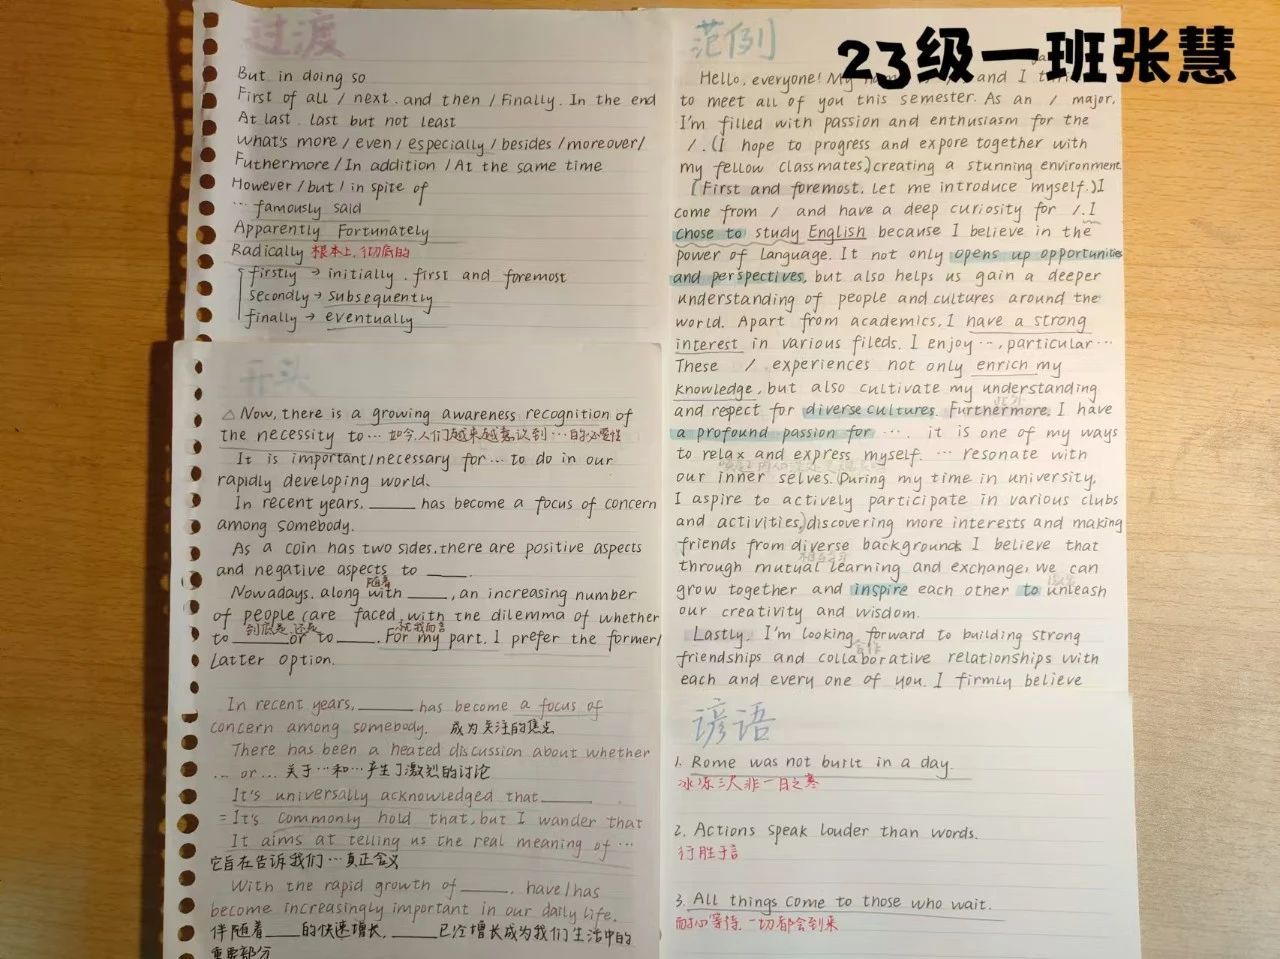 23级一班张慧
过渡
But in doing so
First of all / next. and then / Finally. In the end
At last. last but not least
what's more / even / especially / besides / moreover /
Futhermore / In addition / At the same time
However / but / in spite of
… famously said
Apparently Fortunately
Radically 根本上,彻底的
firstly → initially. first and foremost
secondly → subsequently
finally → eventually
开头
△ Now, there is a growing awareness recognition of
the necessity to… 如今,人们越来越意识到…的必要性
It is important/necessary for… to do in our
rapidly developing world.
In recent years, ____ has become a focus of concern
among somebody.
As a coin has two sides, there are positive aspects
and negative aspects to ____.
随着
Nowadays, along with ____, an increasing number
of people care faced with the dilemma of whether
到底是 还是 就我而言
to ____ or to ____. For my part, I prefer the former/
Latter option.
In recent years, ____ has become a focus of
concern among somebody. 成为关注的焦点
There has been a heated discussion about whether
… or … 关于…和…产生了激烈的讨论
It's universally acknowledged that ____
= It's commonly hold that, but I wander that
It aims at telling us the real meaning of …
它旨在告诉我们…真正含义
With the rapid growth of ____, have/has
become increasingly important in our daily life.
伴随着____的快速增长, ____已经增长成为我们生活中的
重要部分
范例
Hello, everyone! My and I
to meet all of you this semester. As an / major,
I'm filled with passion and enthusiasm for the
/. (I hope to progress and expore together with
my fellow classmates,) creating a stunning environment
(First and foremost, let me introduce myself.) I
come from / and have a deep curiosity for /. I
chose to study English because I believe in the
power of language. It not only opens up opportunities
and perspectives, but also helps us gain a deeper
understanding of people and cultures around the
world. Apart from academics, I have a strong
interest in various fileds. I enjoy …, particular …
These / experiences not only enrich my
knowledge, but also cultivate my understanding
此外
and repect for diverse cultures. Furthermore, I have
a profound passion for …. it is one of my ways
to relax and express myself. … resonate with
our inner selves. (During my time in university,
I aspire to actively participate in various clubs
and activities,) discovering more interests and making
friends from diverse backgrounds. I believe that
through mutual learning and exchange, we can
grow together and inspire each other to unleash
our creativity and wisdom.
Lastly, I'm looking forward to building strong
合作
friendships and collaborative relationships with
each and every one of you. I firmly believe
谚语
1. Rome was not built in a day.
冰冻三尺非一日之寒
2. Actions speak louder than words.
行胜于言
3. All things come to those who wait.
耐心等待,一切都会到来